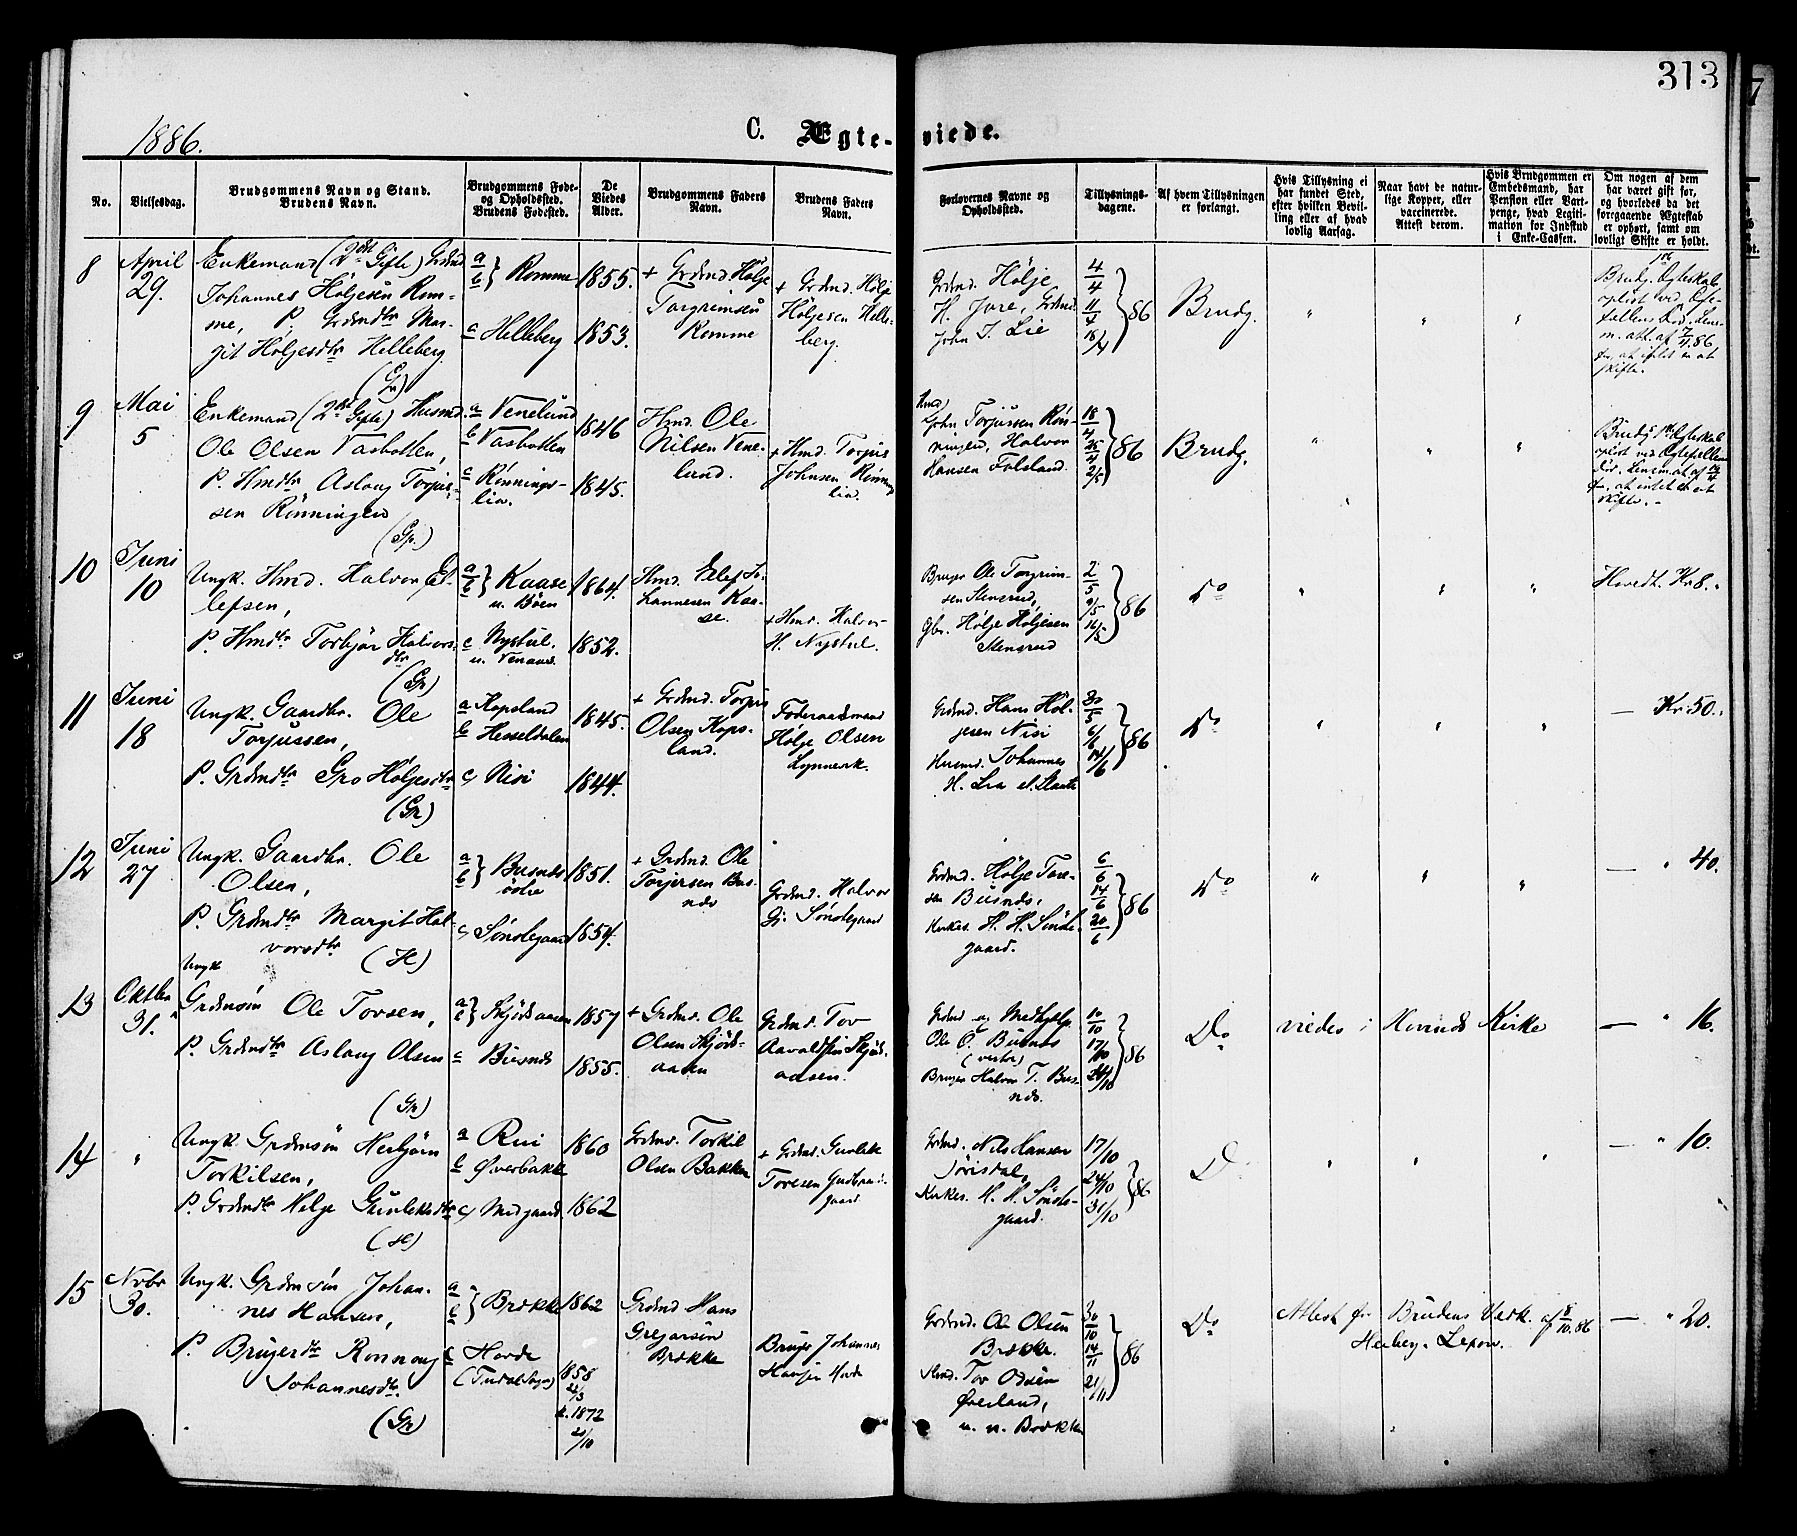 313
1886.
C. Ægte-viede.
No.
Vielsesdag.
Brudgommens Navn og Stand.
Brudens Navn.
Brudgommens Føde-
og Opholdssted.
Brudens Fødested.
De
Viedes
Alder.
Brudgommens Faders
Navn.
Brudens Faders
Navn.
Forlovernes Navne og
Opholdssted.
Tillysnings-
dagene.
Af hvem Tillysningen
er forlangt.
Hvis Tillysning ei
har fundet Sted,
efter hvilken Bevil-
ling eller af hvad
lovlig Aarsag.
Naar havt de natur-
lige Kopper, eller
vaccinerede.
Attest derom.
Hvis Brudgommen er
Embedsmand, har
Pension eller Vart-
penge, hvad Legiti-
mation for Indskud
i Enke-Cassen.
Om nogen af dem
har været gift før,
og hvorledes da det
foregaaende Ægteskab
er ophørt, samt om
lovligt Skifte er holdt.
8
April
29.
Enkemand (2den Gifte) Grdmd
Johannes Høljesen Rom-
me, P. Grdmdtr Mar-
git Høljesdtr Helleberg
(Gr)
a
b } Romme
c Helleberg
1855.
1853.
+ Grdmd Hølje
Torgrimsen
Romme
+ Grdmd. Hølje
Høljesen Helle-
berg.
Grdmd. Hølje
H. Jore, Grdmd.
John T. Lie
4/4
11/4
18/4
} 86
Brudg.
" " "
Brudg. 1ste Egteskab
opløst ved Egte-
fellens Død. Lens-
m. att. af 7/4 86,
for, at intet er at
skifte.
9
Mai
5
Enkemand (2den Gifte) Husmd.
Ole Olsen Vasbotten,
P. Hmdtr Aslaug Torjus-
sen Rønningen
(Gr.)
a Venelund
b Vasbotten
c Rønnings-
lia.
1846
1845.
Hmd. Ole
Nilsen Vene-
lund.
+ Hmd. Torjus
Johnsen Rønnings
lia.
Hmd.
John Torjussen Røn-
ningen, Halvor
Hansen Folsland.
18/4
25/4
2/5
} 86
Brudg.
" " "
Brudg. 1ste Egteskab
opløst ved Egtefellens
Død. Lensm. at. af 14/4
for, at intet er at
skifte. -
10
Juni
10
Ungk. Hmd. Halvor El-
lefsen,
P. Hmdtr Torbjør Halvors-
dtr
(Gr)
a
b } Kaase
u. Bøen
c Nystul.
u. Venaas.
1864.
1852.
Hmd. Ellef Jo-
hannesen Kaa-
se.
+ Hmd. Halvor
H. Nystul.
Bruger Ole Torgrim-
sen Stensrud,
Gbr. Hølje Høljesen
Stensrud
2/5
9/5
16/5
} 86
Do
" " "
Hovedt. Kr 8. "
11
Juni
18
Ungk. Gaardbr. Ole
Torjussen,
P. Grdmdtr Gro Høljesdtr
(Gr)
a Kopsland
b Hesseldalen
c Nisi
1845.
1844.
+ Grdmd. Torjus
Olsen Kops-
land.
Føderaadsmand
Hølje Olsen
Grdmd. Hans Høl-
jesen Nisi
Husmd. Johannes
H. Lia
30/5
6/6
14/6
} 86
Do
" " "
— Kr 50. "
12
Juni
27
Ungk. Gaardbr. Ole
Olsen,
P. Grdmdtr Margit Hal-
vorsdtr (H)
a
b } Busnes
østre
c Søndegaard
1851.
1854.
+ Grdmd. Ole
Torjersen Bus-
nes
Grdmd. Halvor
G. Søndegaard
Grdmd. Hølje Tore-
sen Busnes,
Kirkes. H. H. Sønde-
gaard.
6/6
14/6
20/6
} 86
Do
" " "
— " 40.
13
Oktbr
31.
Ungk
Grdmsøn Ole Torsen,
P. Grdmdtr Aslaug Olsen
(Gr)
a
b } Skjørsaasen
c Busnes
1857
1855.
+ Grdmd. Ole
Olsen Skjørs-
aasen
Grdmd. Tov
Aavaldsen Skjørs-
aasen.
Grdmd og Medhjelp.
Ole O. Busnes
(vestre)
Bruger Halvor T. Bus-
nes.
10/10
17/10
24/10
} 86
Do
viedes i Hovinds Kirke
— " 16.
14
"
Ungk. Grdmsøn Herbjørn
Torkilsen,
P. Grdmdtr Helge Gunleiksdtr
(H)
a Rui
b Øverbakke
c Midgaard.
1860
1862
Grdmd. Torkil
Olsen Bakken
+ Grdmd. Gunleik
Toresen Gudbrands-
gaard
Grdmd. Nils Hansen
Jørisdal,
Kirkes. H. H. Sønde-
gaard.
17/10
24/10
31/10
} 86
D
" " "
— " 10.
15
Novbr
30.
Ungk. Grdmsøn Johan-
nes Hansen,
P. Brugerdtr Rønnaug
Johannesdtr.
(Gr)
a
b } Brokke
c Hovde
(Tudal Sogn)
1862
1858
21/3
k. 1872
20/10
Grdmd Hans
Gregarsen
Brokke
Bruger Johannes
Hansen Hovde
Grdmd. Ole Olsen
Brokke.
Hmd. Tov Olsen
Øverland,
u. n. Brokke
30/10
14/11
21/11
} 86
Do
Attest for Brudens Vedk. af 8/10 86
— " 20.